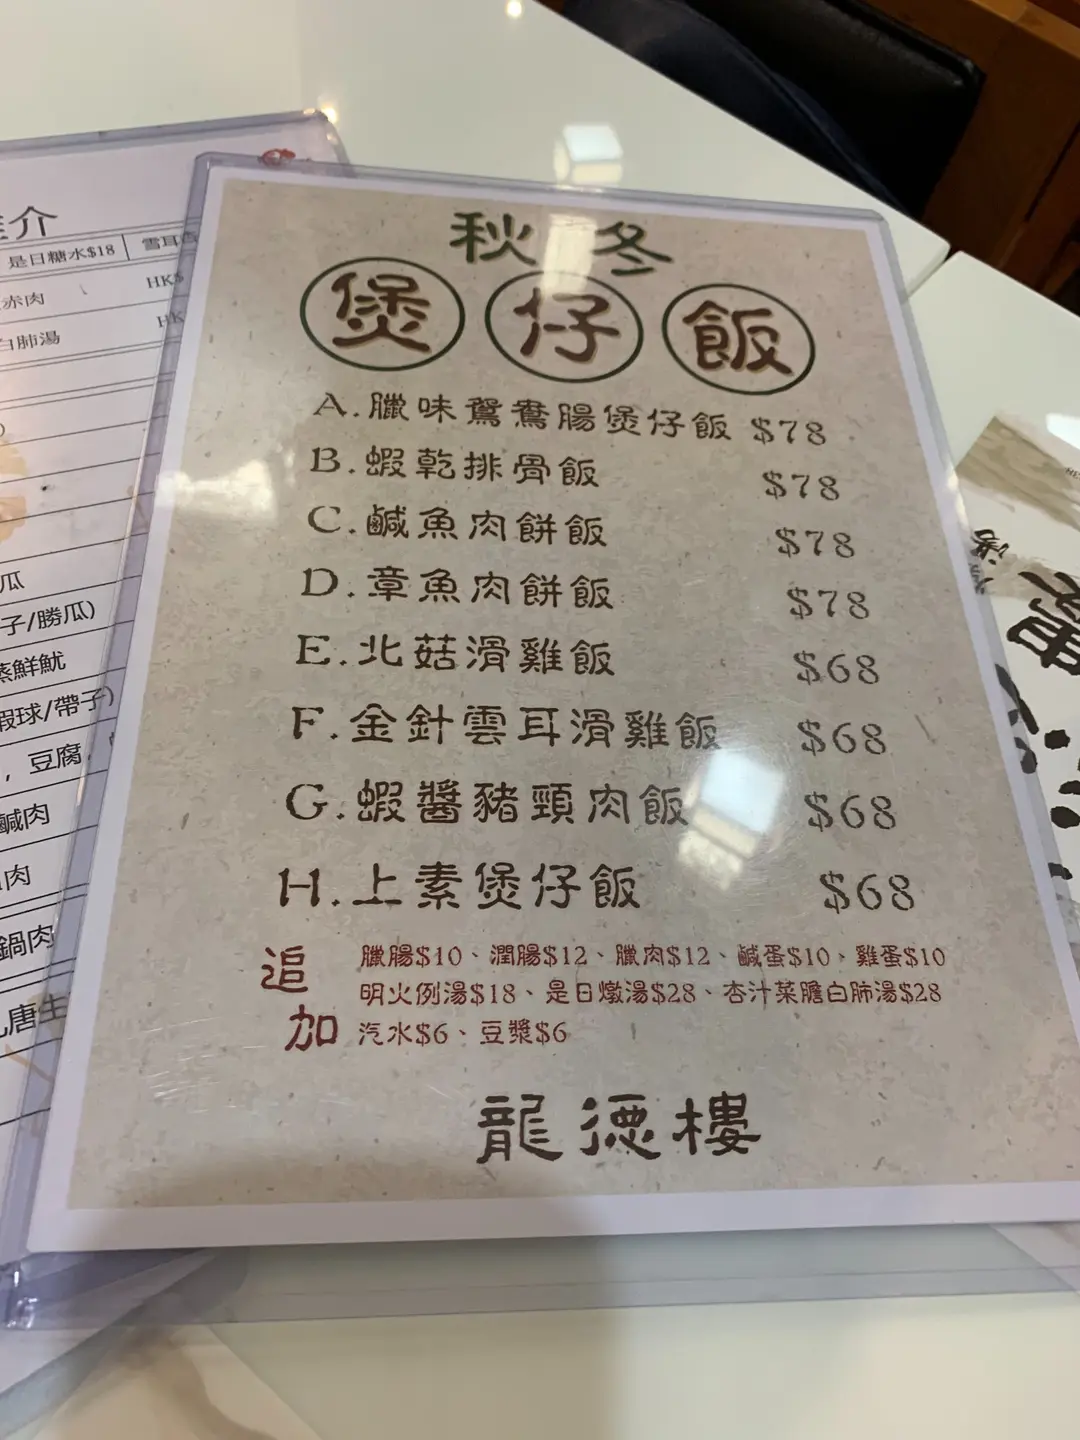 秋冬
煲仔飯
A.臘味鴛鴦腸煲仔飯 $78
B.蝦乾排骨飯 $78
C.鹹魚肉餅飯 $78
D.章魚肉餅飯 $78
E.北菇滑雞飯 $68
F.金針雲耳滑雞飯 $68
G.蝦醬豬頸肉飯 $68
H.上素煲仔飯 $68
追加
臘腸$10、潤腸$12、臘肉$12、鹹蛋$10、雞蛋$10
明火例湯$18、是日燉湯$28、杏汁菜膽白肺湯$28
汽水$6、豆漿$6
龍德樓
介
是日糖水$18 雪耳
赤肉 HK$
白肺湯 HK
瓜
子/勝瓜)
蒸鮮魷
蝦球/帶子)
，豆腐
鹹肉
肉
鍋肉
唐生